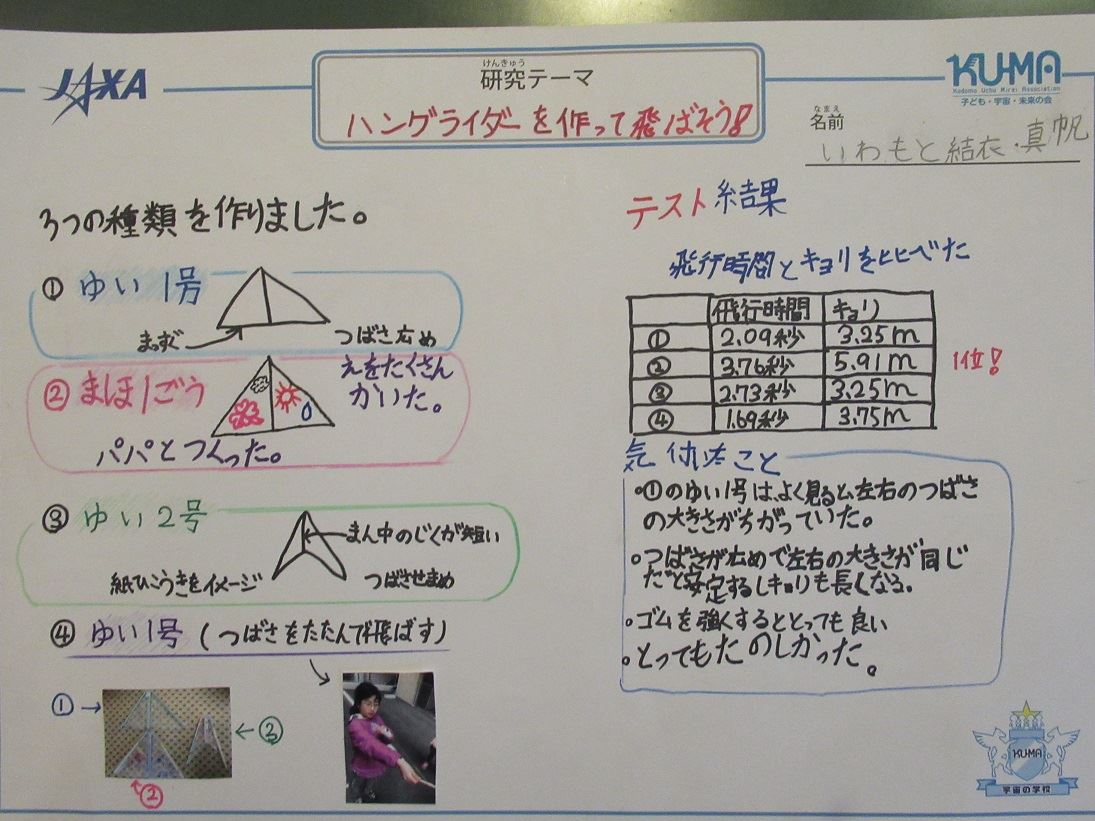 JAXA
けんきゅう
研究テーマ
ハングライダーを作って飛ばそう!
KU-MA
Kodomo Uchu Mirai Association
子ども・宇宙・未来の会
なまえ
名前
いわもと結衣・真帆
3つの種類を作りました。
① ゆい1号
まっすぐ
つばさ広め
② まほ1ごう
えをたくさん
かいた。
パパとつくった。
③ ゆい2号
まん中のじくが短い
紙ひこうきをイメージ
つばさせまめ
④ ゆい1号(つばさをたたんで飛ばす)
①
③
②
テスト結果
飛行時間とキョリをヒヒべた
飛行時間 キョリ
① 2.09秒 3.25m
② 3.76秒 5.91m
③ 2.73秒 3.25m
④ 1.69秒 3.75m
1位!
気付いたこと
・①のゆい1号は、よく見ると左右のつばさ
の大きさがちがっていた。
・つばさが広めで左右の大きさが同じ
だと安定するしキョリも長くなる。
・ゴムを強くするととっても良い
・とってもたのしかった。
KU-MA
宇宙の学校